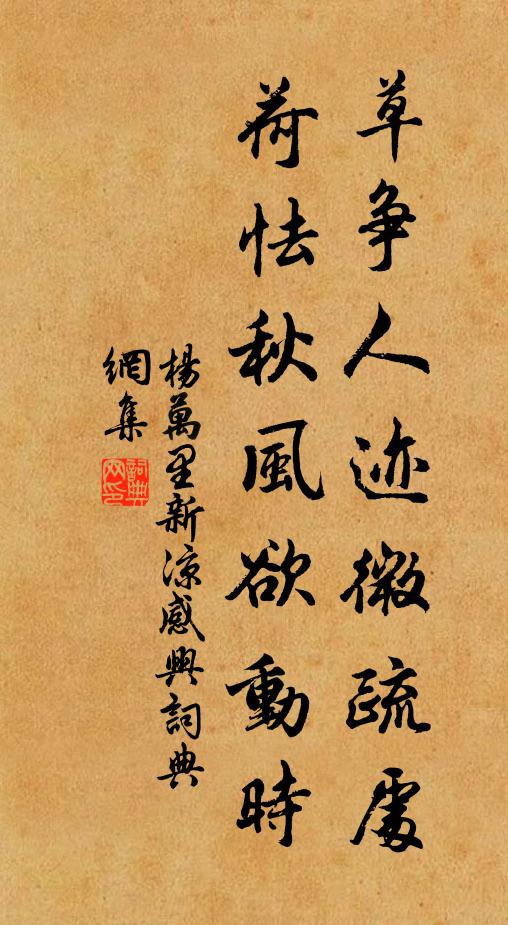 草争人迹微疏處
荷怯秋風欲動時
楊萬里新涼感興詞典
網集
詞典網印